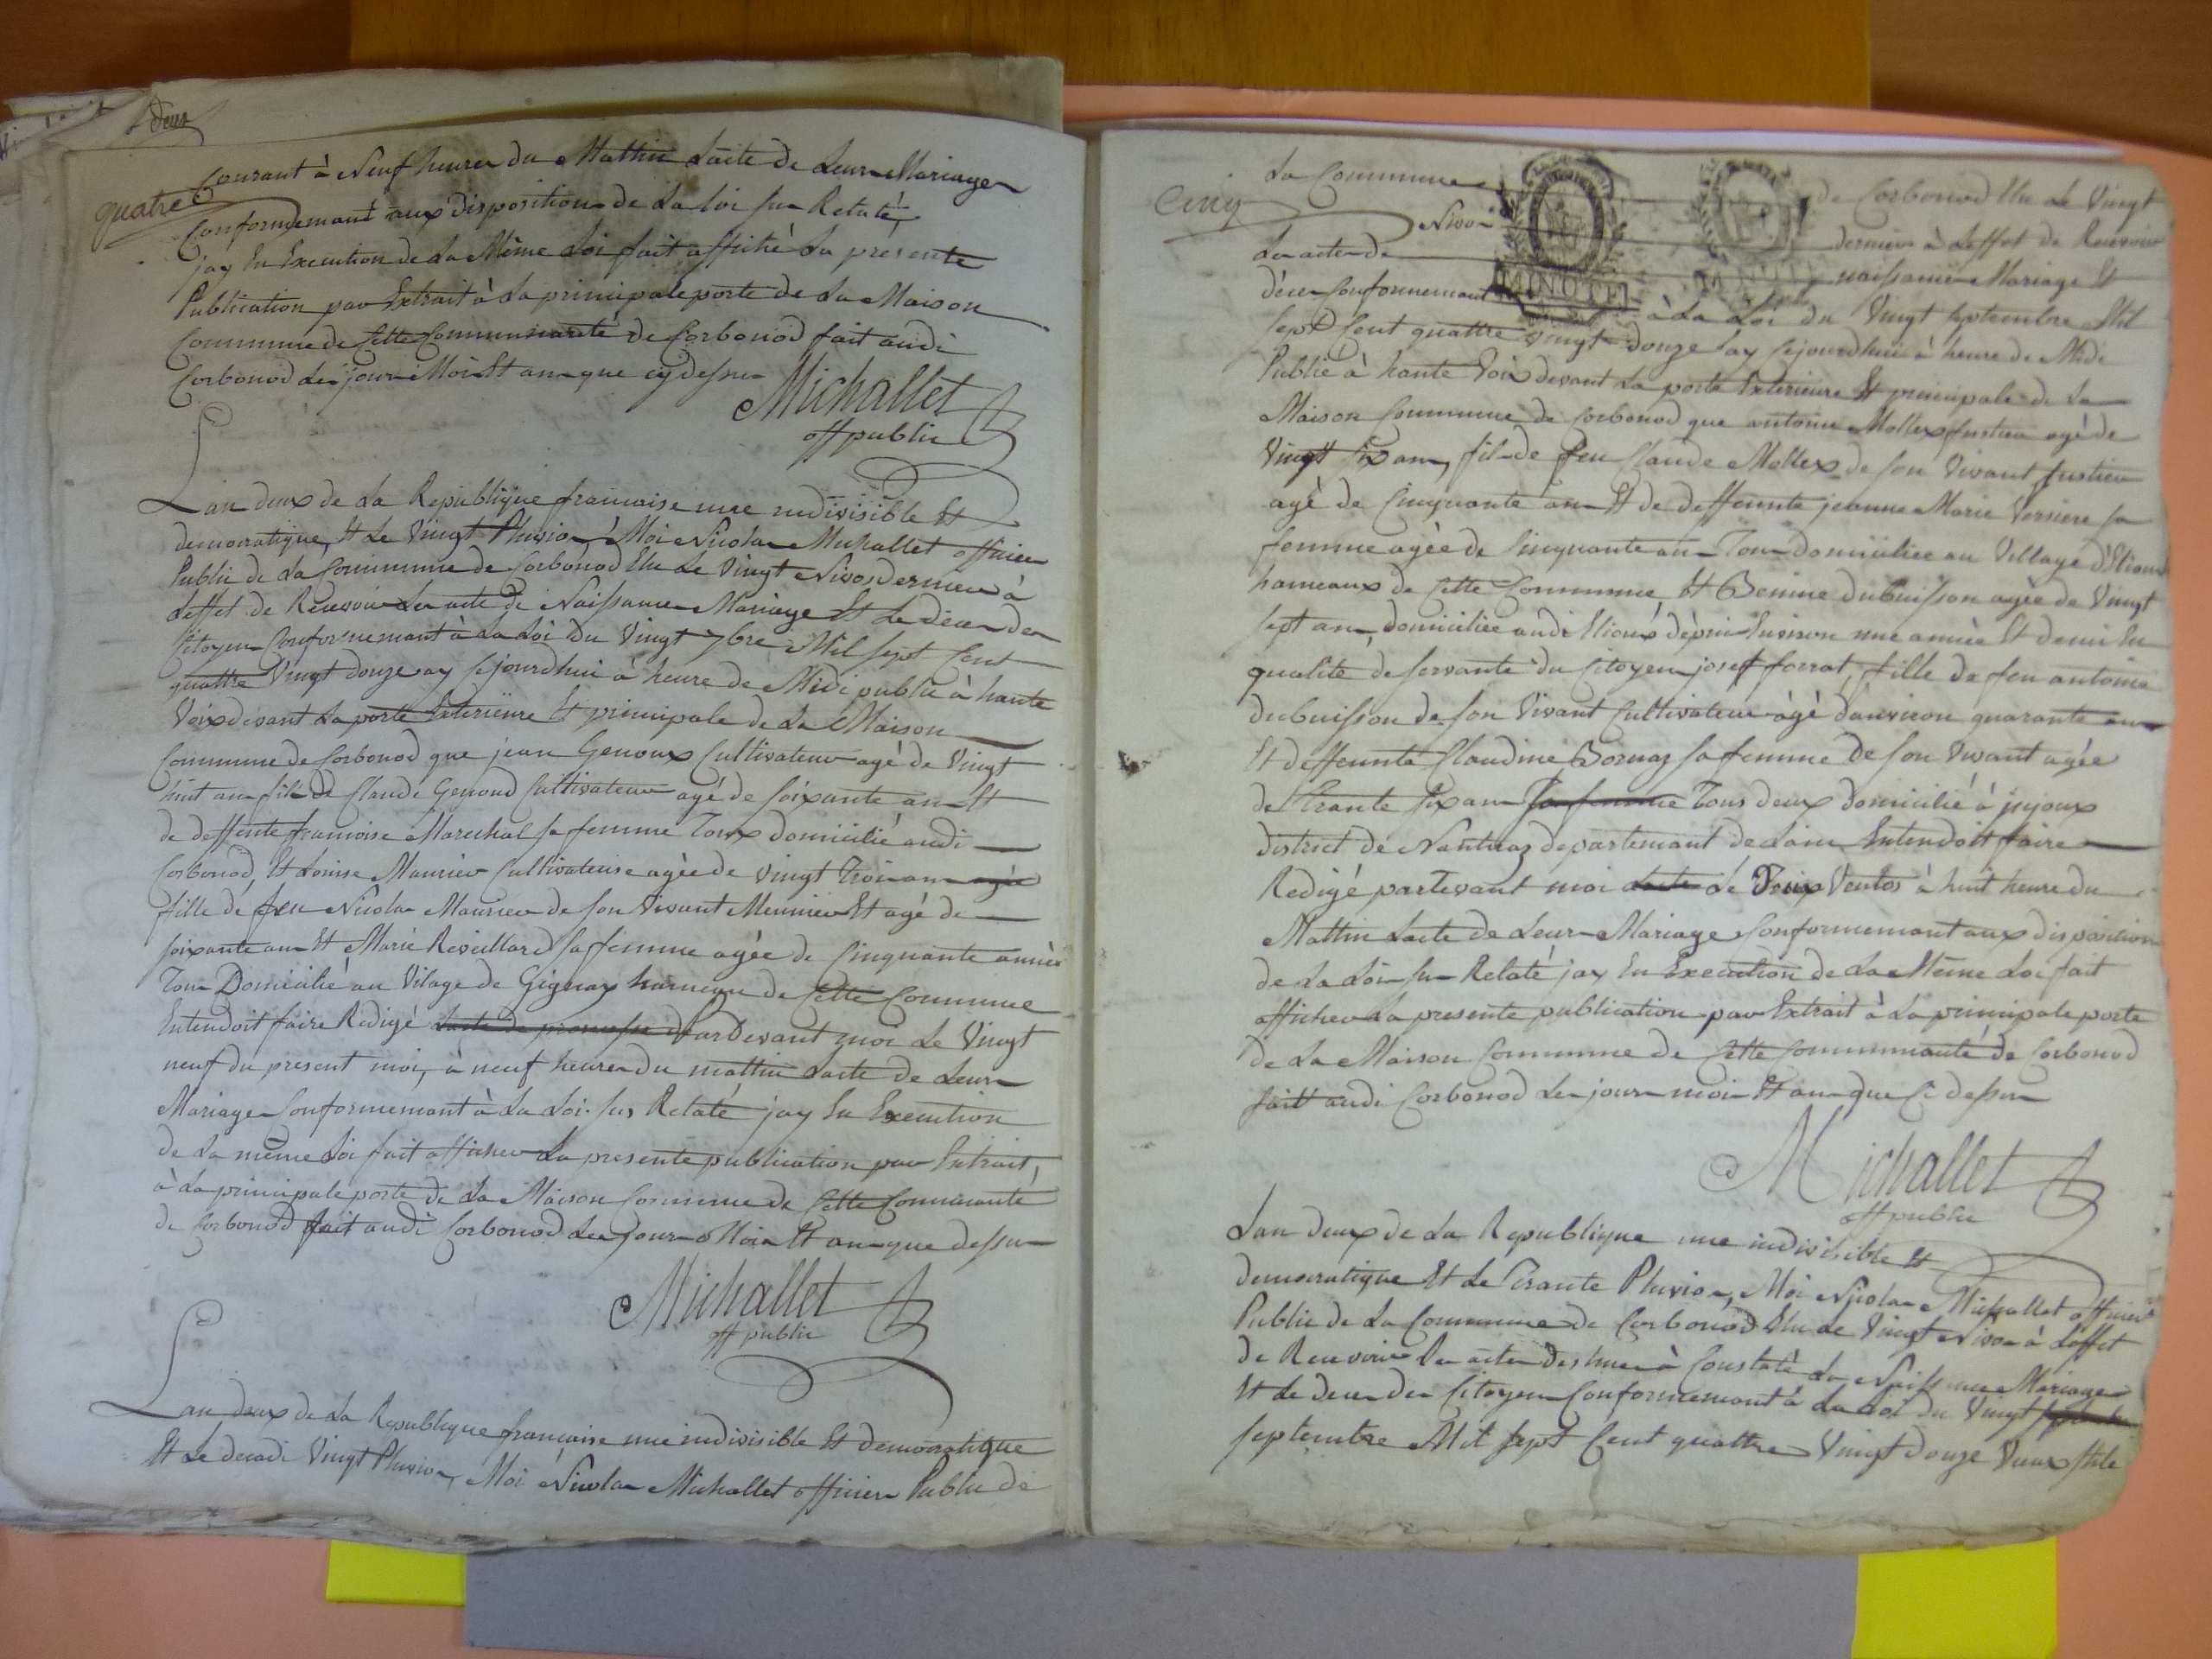 deux
quatre
Courant à Neuf heures du Matthin Lacte de Leurs Mariages
Conformdemant aux disposition de La loi sus Relaté,
jay En Execution de La Même Loi fait affiché La presente
Publication par Extrait à La principale porte de La Maison
Commune de Cette Communauté de Corbonod fait audi
Corbonod Les jour Moi Et an que cy dessu
Michallet
off public
Lan deux de La Republique francaise une indivisible Et
democratique, Et Le Vingt Pluvios, Moi Nicolas Michallet officier
Public de La Commune de Corbonod Elu Le Vingt Nivos dernier à
Leffet de Recevoir Les acte de Naissance Mariage Et Le déces des
Citoyen Conformemant à La Loi Du Vingt 7bre Mil sept Cent
quattre Vingt douze ay sejourdhui à heure de Midi publié à haute
Voix devant La porte Exterieure Et principale de La Maison
Commune de Corbonod que jean Genoux Cultivateur agé de Vingt
huit an fils de Claude Genoud Cultivateur agé de soixante an Et
de deffente francoise Marechal sa femme Tous domicilié audi
Corbonod, Et Louise Maurier Cultivateuse agée de Vingt Troi an agée
fille dé feu Nicolas Maurier de son Vivant Meunier Et agé de
soixante an Et Marie Reveillard sa femme agée de Cinquante année
Tous Domicilié au Vilage de Gignez hameau de Cette Commune
Entendoit faire Redigé Lacte de promesse Par Devant moi Le Vingt
neuf du present moi, à neuf heures du matthin Lacte de Leurs
Mariage Conformemant à La Loi sus Relaté jay En Execution
de La même Loi fait afficher La presente publication par Extrait,
à La principale porte de La Maison Commune de Cette Communauté
de Corbonod fait audi Corbonod Les jour Moi Et an que dessu
Michallet
off public
Lan deux de La Republique francaise une indivisible Et democratique
Et Le decadi Vingt Pluvios, Moi Nicolas Michallet officier Public de
Cinq
La Commune de Corbonod Elu Le Vingt
Nivos dernier à Leffet de Recevoir
Les acte de naissance Mariage Et
déces Conformemant à La Loi du Vingt septembre Mil
MINUTE MINUTE
sept Cent quattre Vingt douze Jay sejourdhui à heure de Midi
Publié à haute Voix devant La porte Exterieure Et principale de La
Maison Commune de Corbonod que antoine Mollex justien agé de
Vingt six an, fils de feu Claude Mollex de son Vivant justien
agé de Cinquante an Et de deffeunte jeanne Marie Versiere sa
femme agée de Cinquante an Tous domiciliee au Village d'Elioux
hameaux de Cette Commune Et Benine Dubuisson agée de Vingt
sept an, domiciliée audi Elioux dépui Environ une année Et demi En
qualité de servante du Citoyen josef forrat, fille de feu antoine
dubuisson de son Vivant Cultivateur agé d'anviron quarante an
Et deffeunte Claudine Bornaz sa femme De son Vivant agée
de Trante six an sa femme Tous deux domicilié à jujoux
district de Nantuaz departemant de Lain Entendoit faire
Redigé partevant moi Lacte Lé Troix Ventos à huit heure du
Matthin Lacte de Leurs Mariage Conformemant aux disposition
de La Loi sus Relaté jay En Execution de La Même Loi fait
afficher La presente publication par Extrait à La principale porte
de La Maison Commune de Cette Communauté de Corbonod
fait audi Corbonod Les jour moi Et an que Ci dessu
Michallet
off public
Lan deux de La Republique une indivisible Et
democratique Et Le Trante Pluvios, Moi Nicolas Michallet officier
Public de La Commune de Corbonod Elu Le Vingt Nivos à Leffet
de Recevoir Les actes destinés à Constaté La Naissance Mariages
Et Le deces des Citoyen Conformemant à La Loi du Vingt
septembre Mil sept Cent quattre Vingt douze Vieux stile